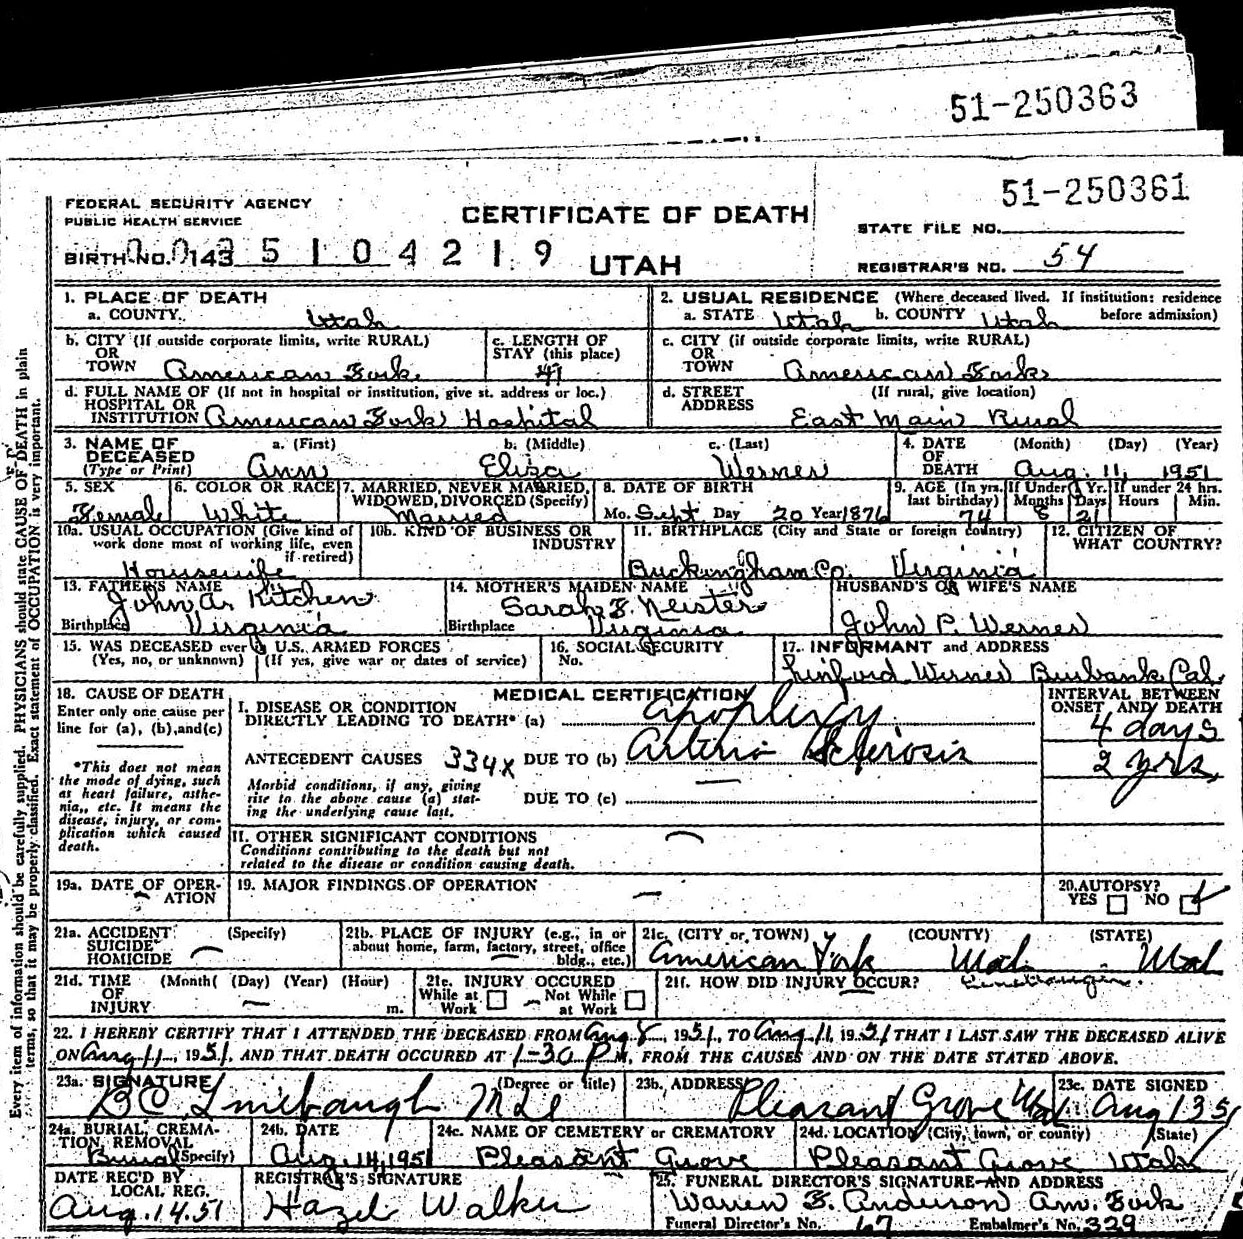 51-250363
51-250361
FEDERAL SECURITY AGENCY
PUBLIC HEALTH SERVICE
CERTIFICATE OF DEATH
STATE FILE NO.
BIRTH NO. 143 0035104219
UTAH
REGISTRAR'S NO. 54
1. PLACE OF DEATH
a. COUNTY. Utah
2. USUAL RESIDENCE (Where deceased lived. If institution: residence before admission)
a. STATE Utah b. COUNTY Utah
b. CITY (If outside corporate limits, write RURAL) OR TOWN American Fork
c. LENGTH OF STAY (this place) 41
c. CITY (if outside corporate limits, write RURAL) OR TOWN American Fork
d. FULL NAME OF (If not in hospital or institution, give st. address or loc.) HOSPITAL OR INSTITUTION American Fork Hospital
d. STREET ADDRESS (If rural, give location) East Main Rural
3. NAME OF DECEASED (Type or Print)
a. (First) Ann
b. (Middle) Eliza
c. (Last) Werner
4. DATE OF DEATH (Month) (Day) (Year) Aug. 11, 1951
5. SEX Female
6. COLOR OR RACE White
7. MARRIED, NEVER MARRIED, WIDOWED, DIVORCED (Specify) Married
8. DATE OF BIRTH Mo. Sept Day 20 Year 1876
9. AGE (In yrs. last birthday) 74
If Under 1 Yr. Months 8 Days 21
If under 24 hrs. Hours Min.
10a. USUAL OCCUPATION (Give kind of work done most of working life, even if retired) Housewife
10b. KIND OF BUSINESS OR INDUSTRY
11. BIRTHPLACE (City and State or foreign country) Buckingham Co. Virginia
12. CITIZEN OF WHAT COUNTRY?
13. FATHER'S NAME John A. Kitchen
Birthplace Virginia
14. MOTHER'S MAIDEN NAME Sarah F. Neister
Birthplace Virginia
HUSBAND'S OR WIFE'S NAME John P. Werner
15. WAS DECEASED ever in U.S. ARMED FORCES
(Yes, no, or unknown) (If yes, give war or dates of service)
16. SOCIAL SECURITY No.
17. INFORMANT and ADDRESS
Linford Werner Burbank Cal.
18. CAUSE OF DEATH
Enter only one cause per line for (a), (b), and (c)
*This does not mean the mode of dying, such as heart failure, asthenia,, etc. It means the disease, injury, or complication which caused death.
MEDICAL CERTIFICATION
I. DISEASE OR CONDITION DIRECTLY LEADING TO DEATH* (a) Apoplexy
ANTECEDENT CAUSES 334X DUE TO (b) Arterio Sclerosis
Morbid conditions, if any, giving rise to the above cause (a) stating the underlying cause last.
DUE TO (c) —
INTERVAL BETWEEN ONSET AND DEATH
4 days
2 yrs,
II. OTHER SIGNIFICANT CONDITIONS
Conditions contributing to the death but not related to the disease or condition causing death.
19a. DATE OF OPERATION —
19. MAJOR FINDINGS OF OPERATION —
20. AUTOPSY?
YES NO ✓
21a. ACCIDENT SUICIDE HOMICIDE (Specify) —
21b. PLACE OF INJURY (e.g., in or about home, farm, factory, street, office bldg., etc.) —
21c. (CITY or TOWN) (COUNTY) (STATE)
American Fork Utah Utah
21d. TIME OF INJURY (Month( (Day) (Year) (Hour) — m.
21e. INJURY OCCURED
While at Work Not While at Work
21f. HOW DID INJURY OCCUR?
22. I HEREBY CERTIFY THAT I ATTENDED THE DECEASED FROM Aug 8, 1951, TO Aug 11, 1951 THAT I LAST SAW THE DECEASED ALIVE
ON Aug 11, 1951, AND THAT DEATH OCCURED AT 1-30 P M, FROM THE CAUSES AND ON THE DATE STATED ABOVE.
23a. SIGNATURE (Degree or title) BC Linebaugh Md
23b. ADDRESS Pleasant Grove Utah
23c. DATE SIGNED Aug 13 51
24a. BURIAL, CREMATION, REMOVAL (Specify) Burial
24b. DATE Aug. 14, 1951
24c. NAME OF CEMETERY or CREMATORY Pleasant Grove
24d. LOCATION (City, town, or county) (State) Pleasant Grove Utah
DATE REC'D BY LOCAL REG. Aug. 14. 51
REGISTRAR'S SIGNATURE Hazel Walker
25. FUNERAL DIRECTOR'S SIGNATURE AND ADDRESS
Warren B. Anderson Am. Fork
Funeral Director's No. 67 Embalmer's No. 329
Every item of information should be carefully supplied. PHYSICIANS should state CAUSE OF DEATH in plain
terms, so that it may be properly classified. Exact statement of OCCUPATION is very important.